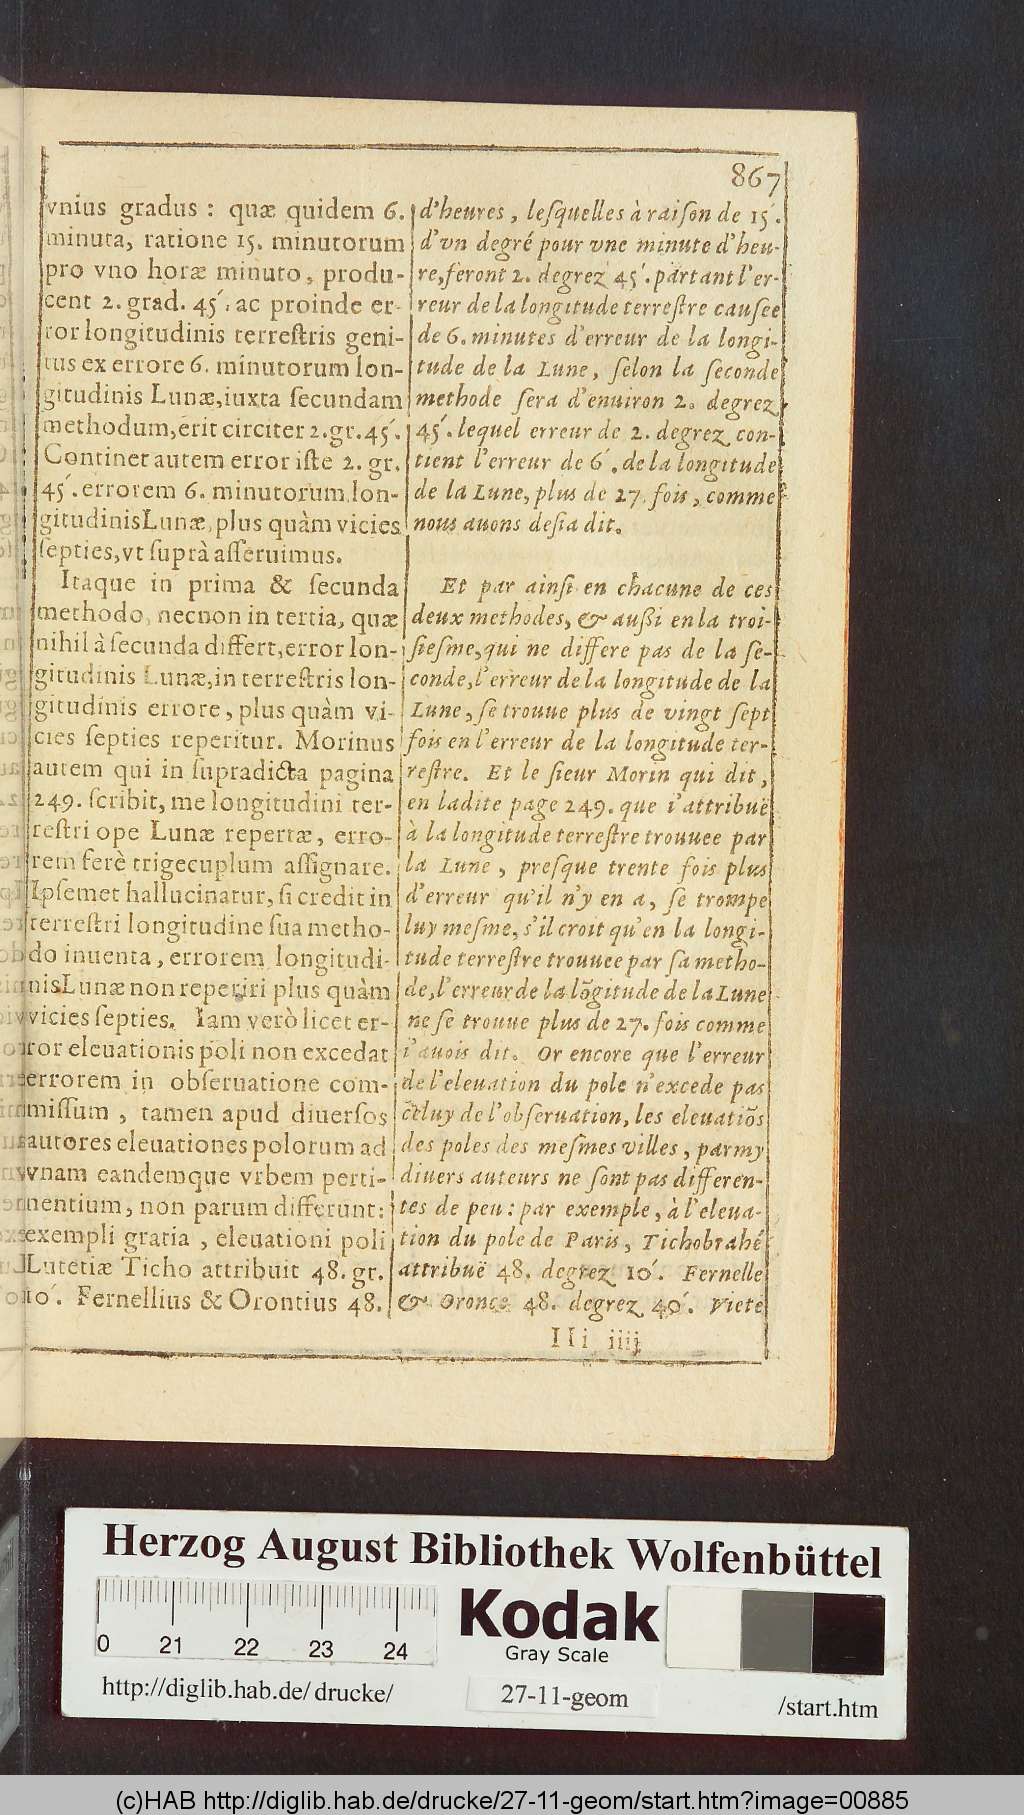 867
vnius gradus : quæ quidem 6.
minuta, ratione 15. minutorum
pro vno horæ minuto, produ-
cent 2. grad. 45′. ac proinde er-
ror longitudinis terreſtris geni-
tus ex errore 6. minutorum lon-
gitudinis Lunæ, iuxta ſecundam
methodum, erit circiter 2. gr. 45′.
Continet autem error iſte 2. gr.
45′. errorem 6. minutorum lon-
gitudinis Lunæ, plus quàm vicies
ſepties, vt ſuprà aſſeruimus.
Itaque in prima & ſecunda
methodo, necnon in tertia, quæ
nihil à ſecunda differt, error lon-
gitudinis Lunæ, in terreſtris lon-
gitudinis errore, plus quàm vi-
cies ſepties reperitur. Morinus
autem qui in ſupradicta pagina
249. ſcribit, me longitudini ter-
reſtri ope Lunæ repertæ, erro-
rem ferè trigecuplum aſſignare.
Ipſemet hallucinatur, ſi credit in
terreſtri longitudine ſua metho-
do inuenta, errorem longitudi-
nis Lunæ non reperiri plus quàm
vicies ſepties. Iam verò licet er-
ror eleuationis poli non excedat
errorem in obſeruatione com-
miſſum, tamen apud diuerſos
autores eleuationes polorum ad
vnam eandemque vrbem perti-
nentium, non parum differunt :
exempli gratia, eleuationi poli
Lutetiæ Ticho attribuit 48. gr.
10′. Fernellius & Orontius 48.
d'heures, leſquelles à raiſon de 15′.
d'vn degré pour vne minute d'heu-
re, feront 2. degrez 45′. partant l'er-
reur de la longitude terreſtre cauſee
de 6. minutes d'erreur de la longi-
tude de la Lune, ſelon la ſeconde
methode ſera d'enuiron 2. degrez
45′. lequel erreur de 2. degrez con-
tient l'erreur de 6′. de la longitude
de la Lune, plus de 27. fois, comme
nous auons deſia dit.
Et par ainſi en chacune de ces
deux methodes, & auſſi en la troi-
ſieſme, qui ne differe pas de la ſe-
conde, l'erreur de la longitude de la
Lune, ſe trouue plus de vingt ſept
fois en l'erreur de la longitude ter-
reſtre. Et le ſieur Morin qui dit,
en ladite page 249. que i'attribuë
à la longitude terreſtre trouuee par
la Lune, preſque trente fois plus
d'erreur qu'il n'y en a, ſe trompe
luy meſme, s'il croit qu'en la longi-
tude terreſtre trouuee par ſa metho-
de, l'erreur de la lõgitude de la Lune
ne ſe trouue plus de 27. fois comme
i'auois dit. Or encore que l'erreur
de l'eleuation du pole n'excede pas
celuy de l'obſeruation, les eleuatiõs
des poles des meſmes villes, parmy
diuers auteurs ne ſont pas differen-
tes de peu : par exemple, à l'eleua-
tion du pole de Paris, Tichobrahé
attribuë 48. degrez 10′. Fernelle
& Oronce 48. degrez 40′. Viete
IIi iiij
Herzog August Bibliothek Wolfenbüttel
0 21 22 23 24
Kodak
Gray Scale
http://diglib.hab.de/drucke/
27-11-geom
/start.htm
(c)HAB http://diglib.hab.de/drucke/27-11-geom/start.htm?image=00885